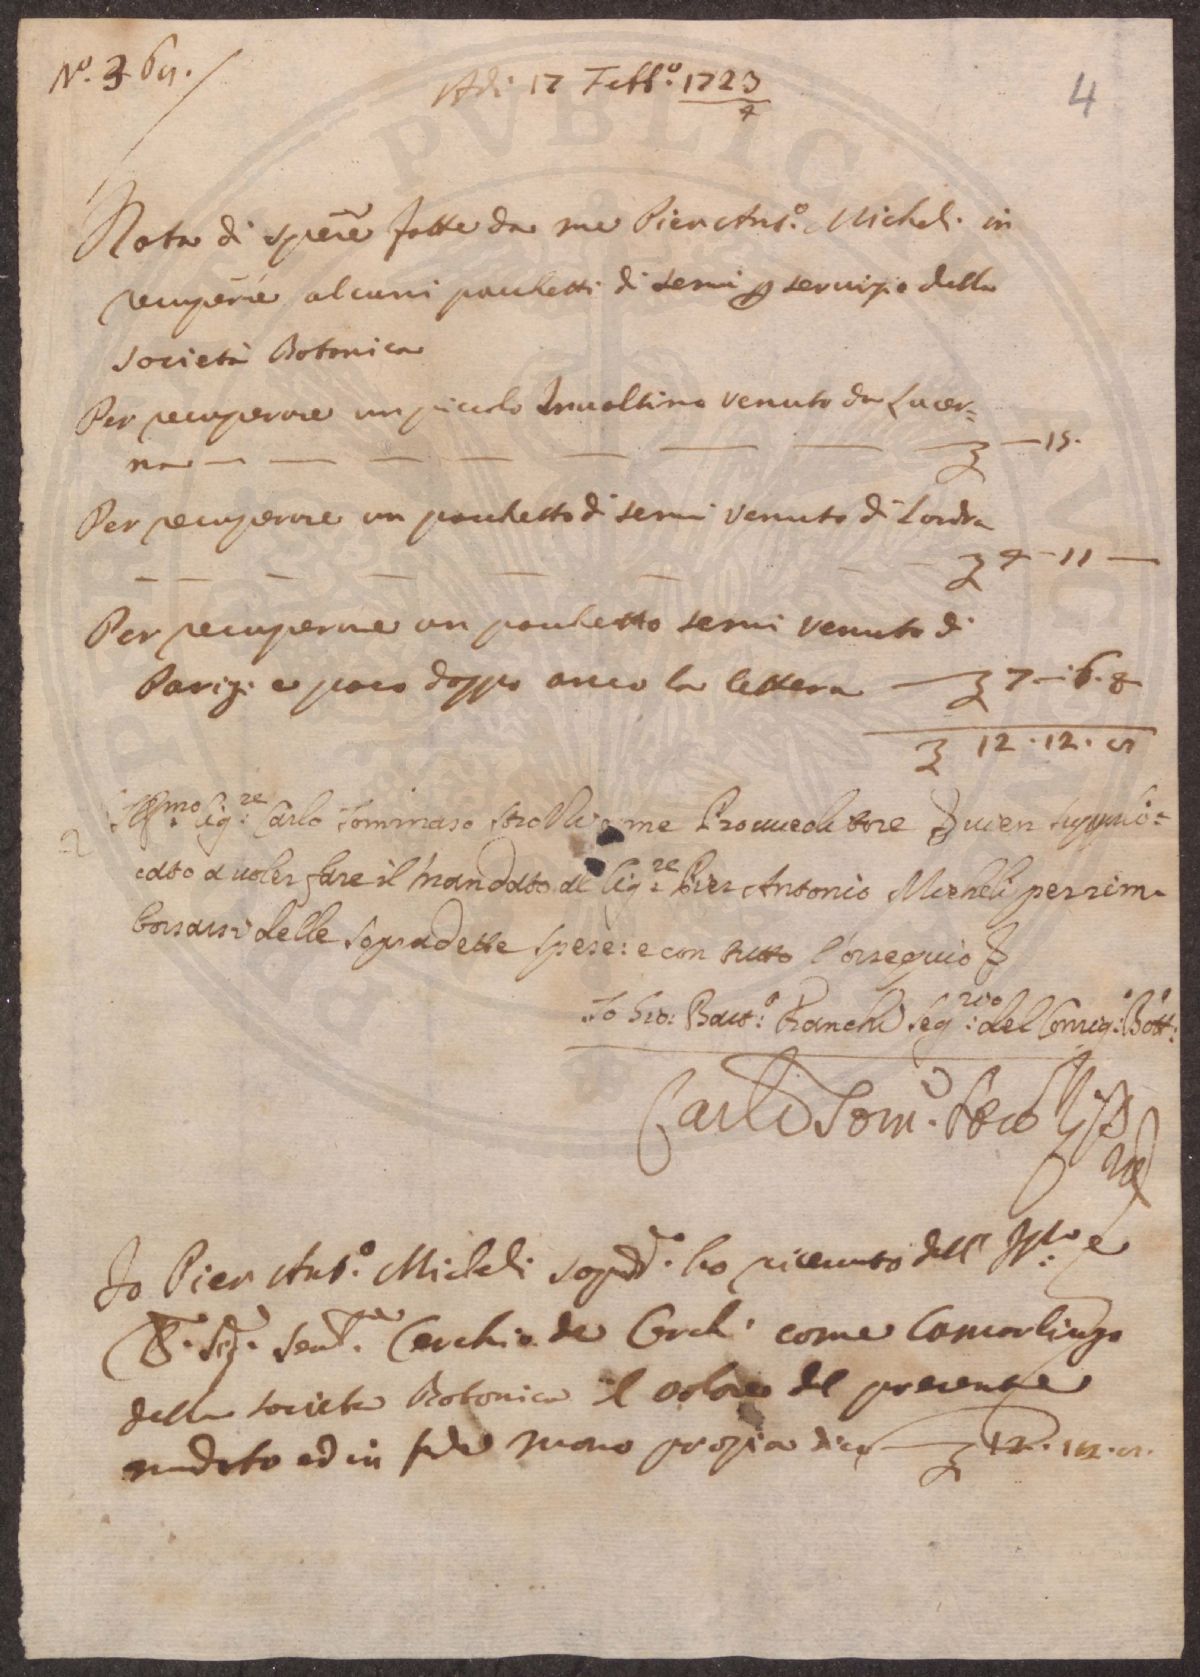 N.º 369.
Adi 17 Febb.º 1723/4
4
Nota di spese fatte da me Pier Ant.º Micheli in
recuperare alcuni pacchetti di semi p servizio della
Società Botanica
Per recuperare un piccolo Involtino venuto da Lucer=
na — — — — — — — — — 15.
Per recuperare un pacchetto di semi venuto di Londra
— — — — — — — 4 — 11 —
Per recuperare un pacchetto semi venuto di
Parigi e poco doppo anco la lettera — 7 — 6. 8
12. 12. 8
Ill.mo Sig.re Carlo Tommaso Strozzi come Proveditore vien suppli=
cato a voler fare il mandato al Sig.re Pier Antonio Micheli per rim=
borsarsi delle sopradette spese: e con tutto l'ossequio
Io Gio: Batt.º Fianchi Seg.rio del Bott:
Carlo Tom.º Strozzi
Io Pier Ant.º Micheli sopradd.º ho ricevuto dall' Ill.º e
Sig. Sen.re Cerchio de Cerchi come Camarlingo
della Società Botanica il valore del presente
mandato ed in fede mano propria dico — 12. 12. 8.
PVBLICA